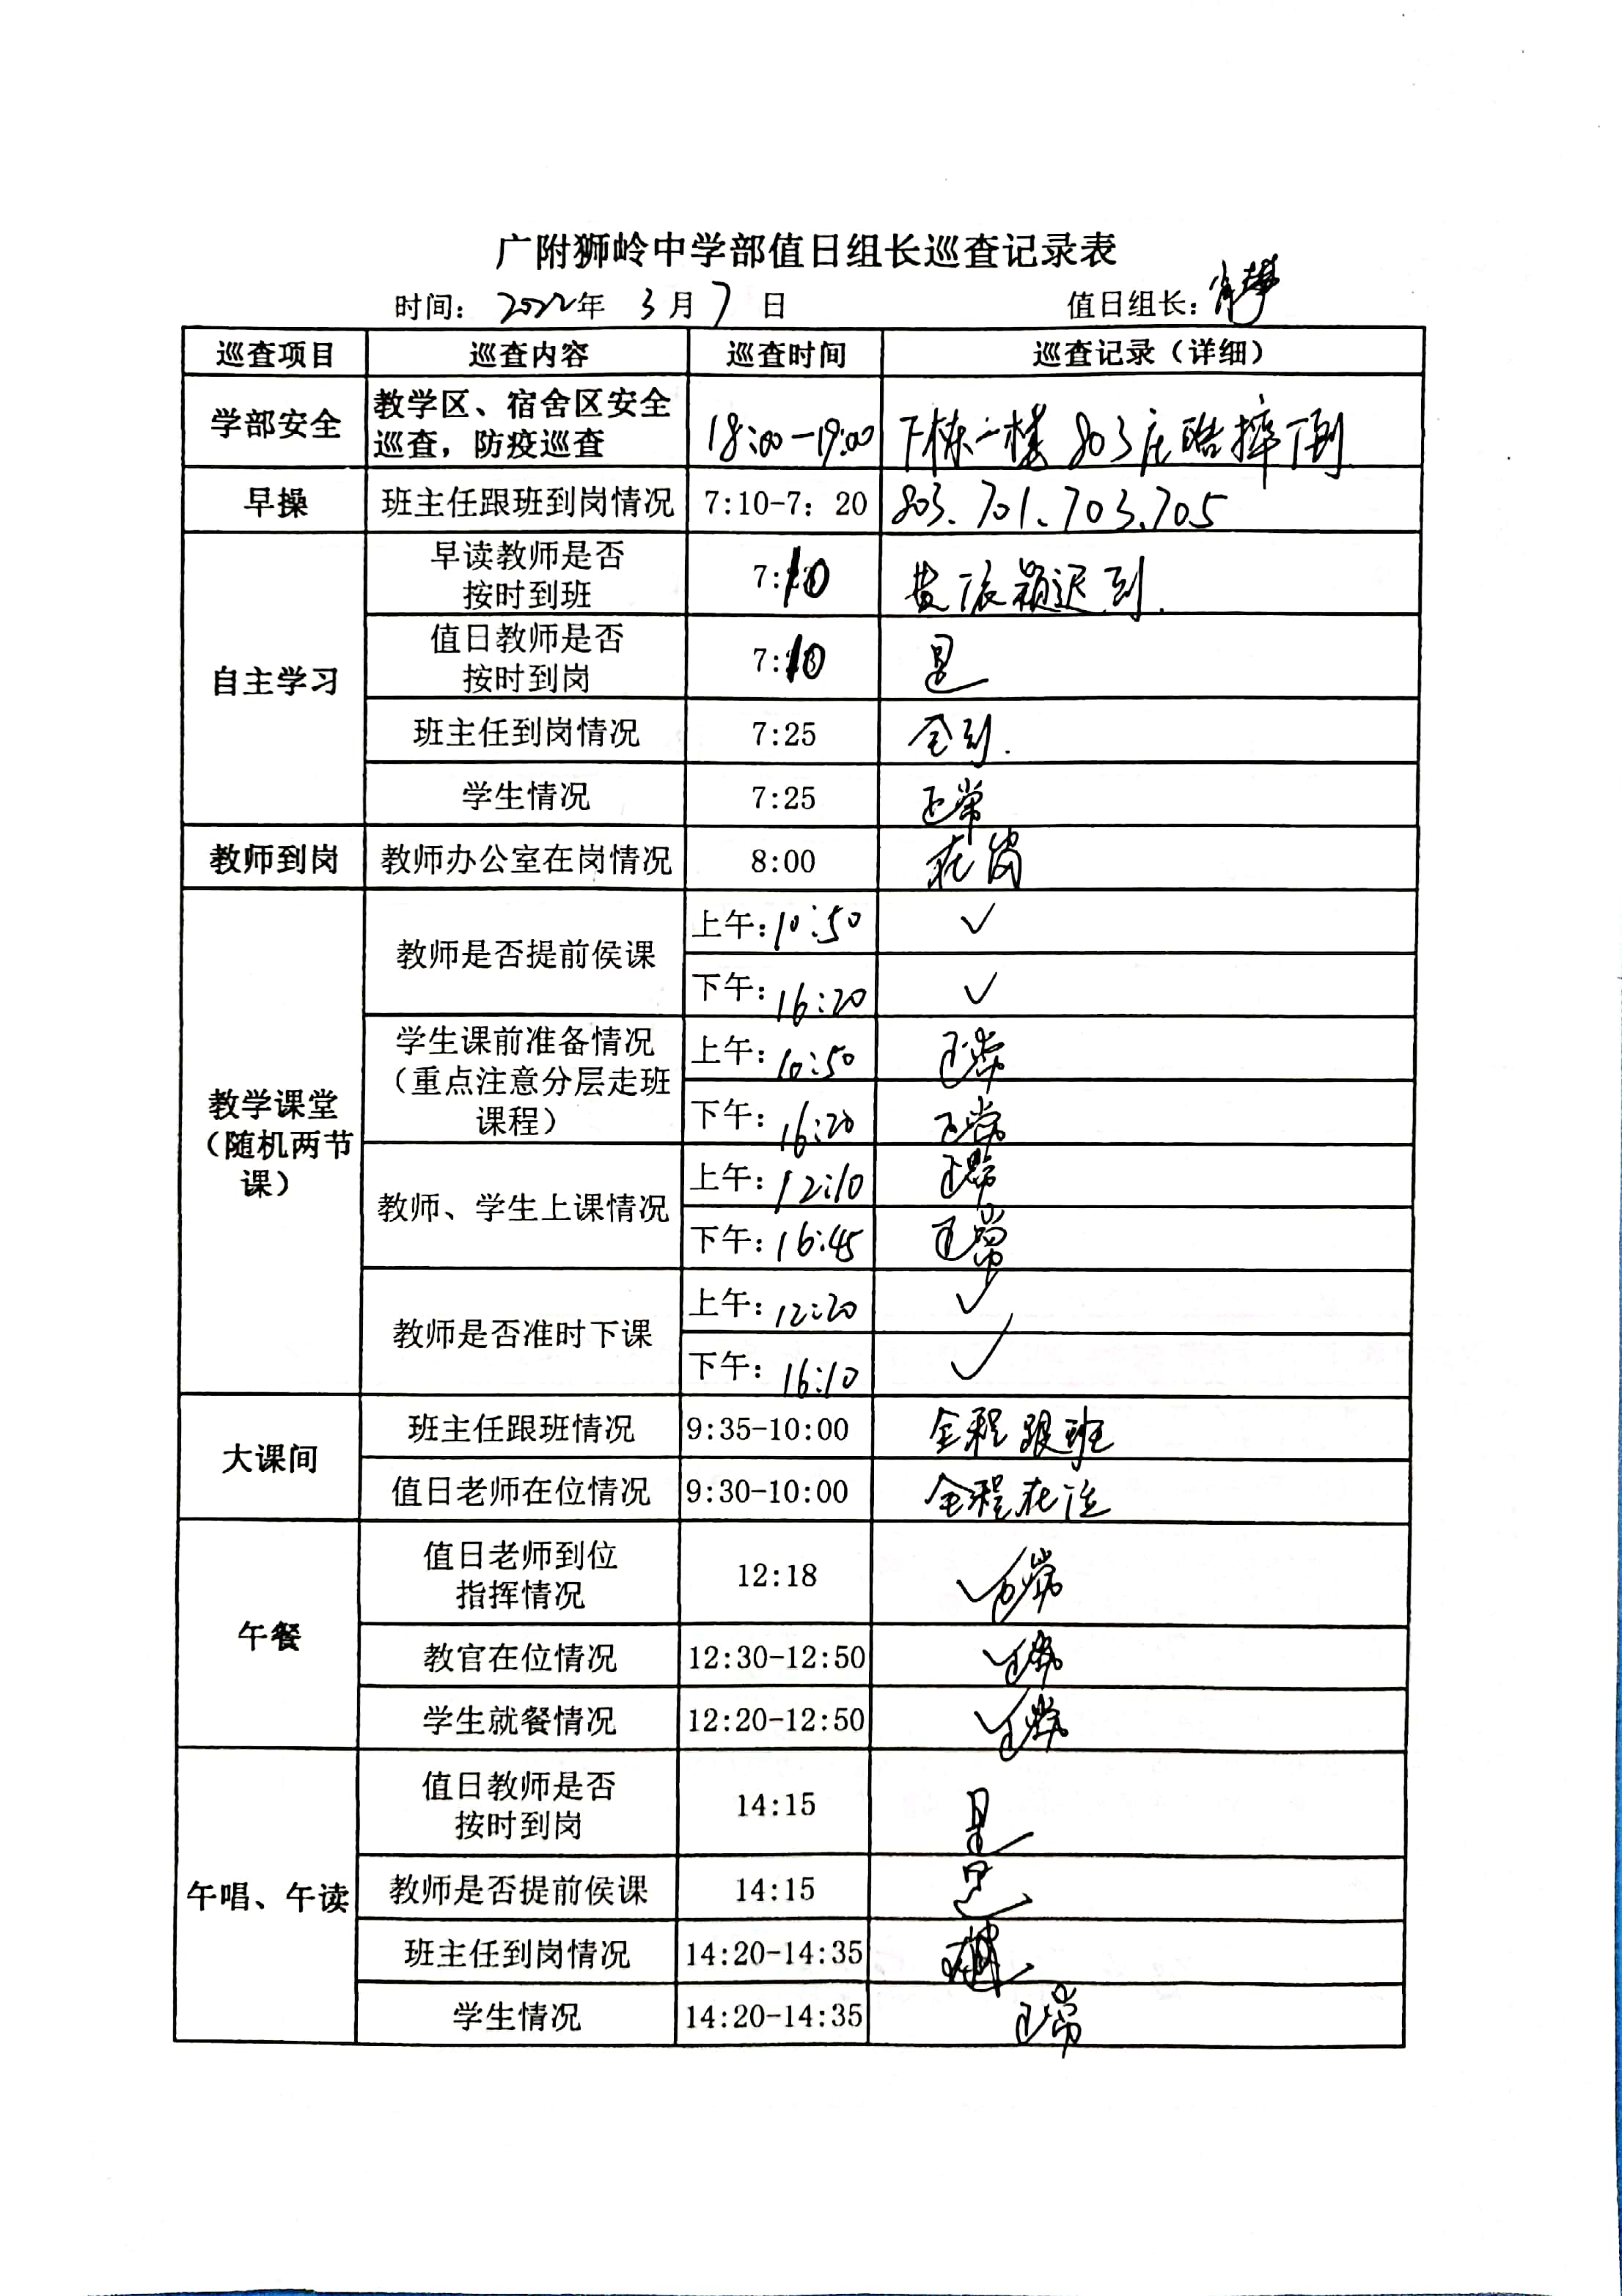 广附狮岭中学部值日组长巡查记录表
时间: 2022年 3月 7日 值日组长:
巡查项目 巡查内容 巡查时间 巡查记录（详细）
学部安全
教学区、宿舍区安全
巡查，防疫巡查
18:00-19:00
下栋一楼 803 摔倒
早操 班主任跟班到岗情况 7:10-7: 20 803、701、703、705
自主学习
早读教师是否
按时到班
7:10
黄依颖迟到.
值日教师是否
按时到岗
7:10
是
班主任到岗情况 7:25 全到.
学生情况 7:25 正常
教师到岗 教师办公室在岗情况 8:00 在岗
教学课堂
（随机两节
课）
教师是否提前侯课
上午: 10:50 ✓
下午: 16:20 ✓
学生课前准备情况
（重点注意分层走班
课程）
上午: 10:50 正常
下午: 16:20 正常
教师、学生上课情况
上午: 12:10 正常
下午: 16:45 正常
教师是否准时下课
上午: 12:20 ✓
下午: 16:10 ✓
大课间
班主任跟班情况 9:35-10:00 全程跟班
值日老师在位情况 9:30-10:00 全程在位
午餐
值日老师到位
指挥情况
12:18
✓正常
教官在位情况 12:30-12:50 ✓正常
学生就餐情况 12:20-12:50 ✓正常
午唱、午读
值日教师是否
按时到岗
14:15
是
教师是否提前侯课 14:15 是
班主任到岗情况 14:20-14:35
学生情况 14:20-14:35 正常